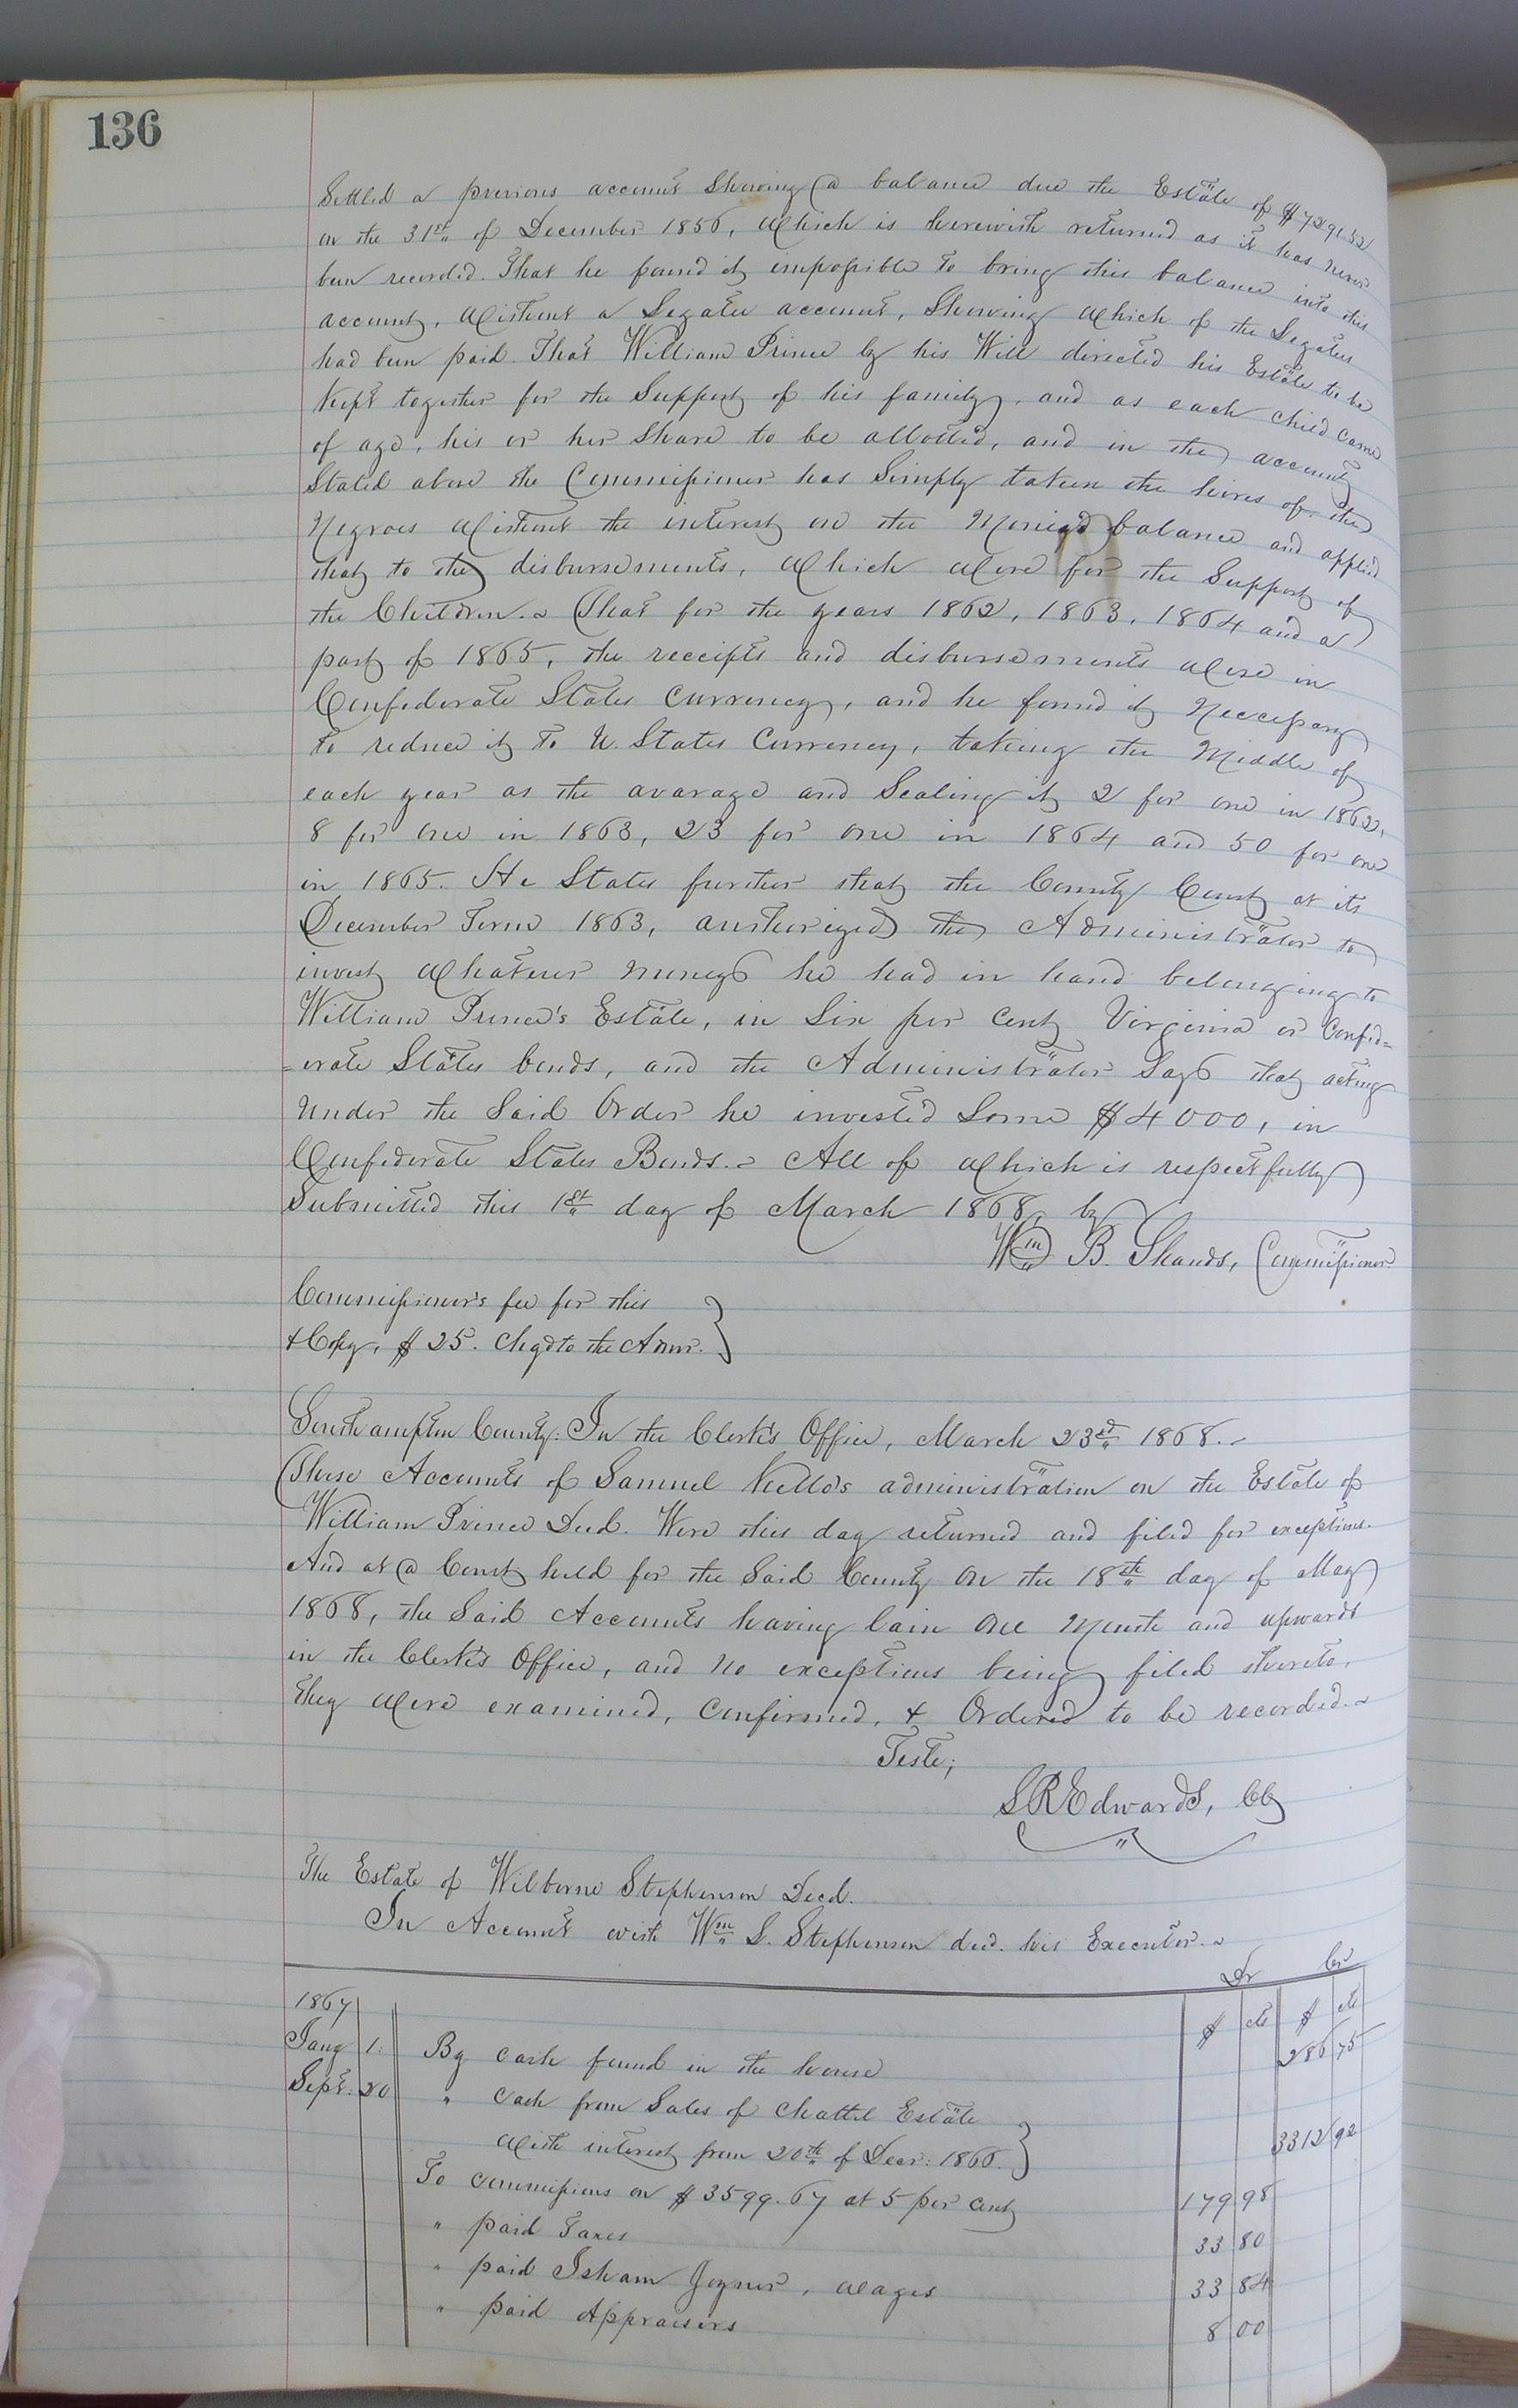 136
Settled a previous account Showing a balance due the Estate of $7291.52
on the 31st of December 1856, Which is herewith returned as it has never
been recorded. That he found it impossible to bring this balance into this
account, Without a Legatee account, Showing Which of the Legatees
had been paid. That William Prince by his Will directed his Estate to be
Kept together for the Support of his family, and as each child came
of age, his or her Share to be allotted, and in the account
Stated above the Commissioner has Simply taken the hires of the
Negroes Without the interest on the Monied balance and applied
that to the disbursements, Which Were for the Support of
the Children. That for the years 1862, 1863, 1864 and a
part of 1865, the receipts and disbursements Were in
Confederate States Currency, and he found it Neccessary
to reduce it to U. States Currency, taking the Middle of
each year as the avarage and Scaling it 2 for one in 1862,
8 for one in 1863, 23 for one in 1864 and 50 for one
in 1865. He States further that the County Court at its
December Term 1863, authorized the Administrator to
invest Whatever moneys he had in hand belonging to
William Prince's Estate, in Six per cent Virginia or Confed=
=erate States bonds, and the Administrator Says that acting
Under the Said Order he invested Some $4000, in
Confederate States Bonds. All of Which is respectfully
Submitted this 1st day of March 1868, by
Wm B. Shands, Commissioner.
Commissioner's fee for this
& Copy, $25. Chgd to the Admr.
Southampton County: In the Clerk's Office, March 23rd 1868.
These Accounts of Samuel Kello's administration on the Estate of
William Prince Decd. Were this day returned and filed for exceptions.
And at a Court held for the Said County On the 18th day of May
1868, the Said Accounts having lain One Month and upwards
in the Clerk's Office, and no exceptions being filed thereto,
They Were examined, Confirmed, & Ordered to be recorded.
Teste;
S R Edwards, CC
The Estate of Wilborne Stephenson Decd.
In Account with Wm S. Stephenson decd. his Executor.
Dr Cr
1867 $ cts $ cts
Jany 1. By cash found in the house 286 75
Sept. 20 " Cash from Sales of Chattel Estate
With interest from 20th of Decr. 1866. 3312 92
To commissions on $3599.67 at 5 per cent 179 98
" paid Taxes 33 80
" paid Isham Joyner, Wages 33 84
" paid Appraisers 8 00